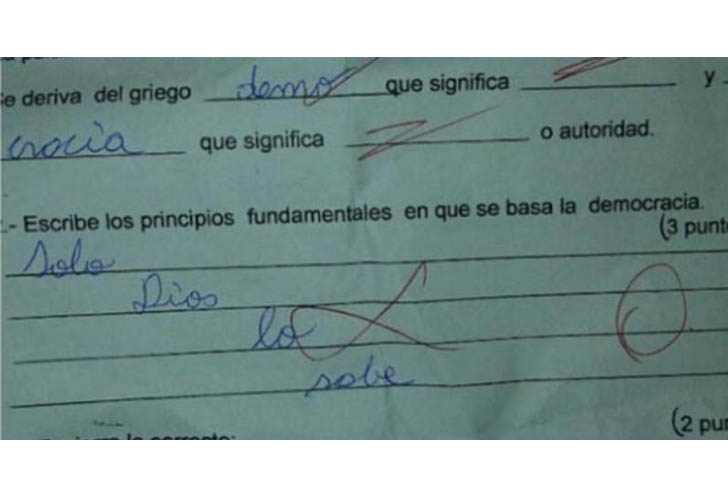 e deriva del griego demo que significa ____ y
crocia que significa ____ o autoridad.
.- Escribe los principios fundamentales en que se basa la democracia.
(3 punt
Solo
Dios
lo
sabe
0
(2 pun